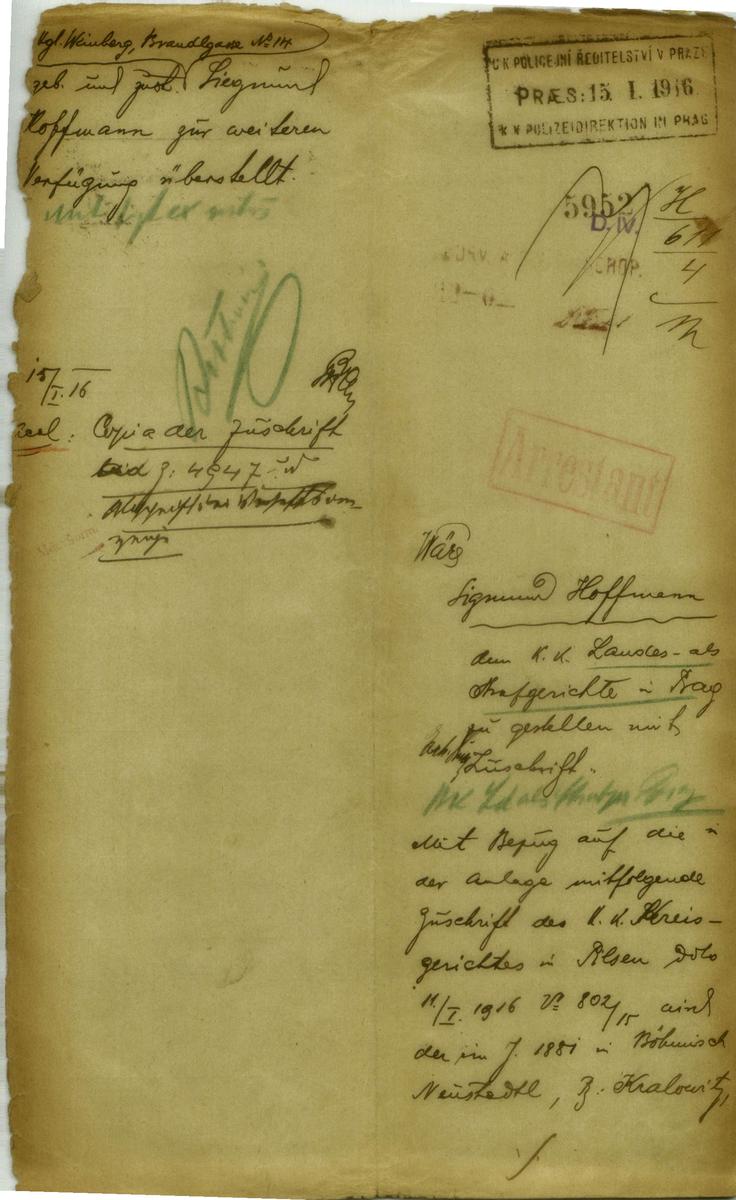 Kgl. Weinberg, Brandlgasse No 14
geb. und zust. Siegmund
Hoffmann zur weiteren
Verfügung überstellt.
15/I. 16
Copia der Zuschrift
Z: 4947
C K POLICEJNÍ ŘEDITELSTVÍ V PRAZE
PRÆS: 15. I. 1916.
K K POLIZEIDIREKTION IN PRAG
5952
D. IV.
H
611
4
Arrestant
Wäre
Sigmund Hoffmann
dem K. K. Landes- als
Strafgerichte in Prag
zu gestellen mit
Zuschrift.
Mit Bezug auf die in
der Anlage mitfolgende
Zuschrift des K. K. Kreis-
gerichtes in Pilsen ddto
11/I. 1916 Vr 802/15 wird
der im J. 1881 in Böhmisch
Neustedtl, B: Kralowitz,